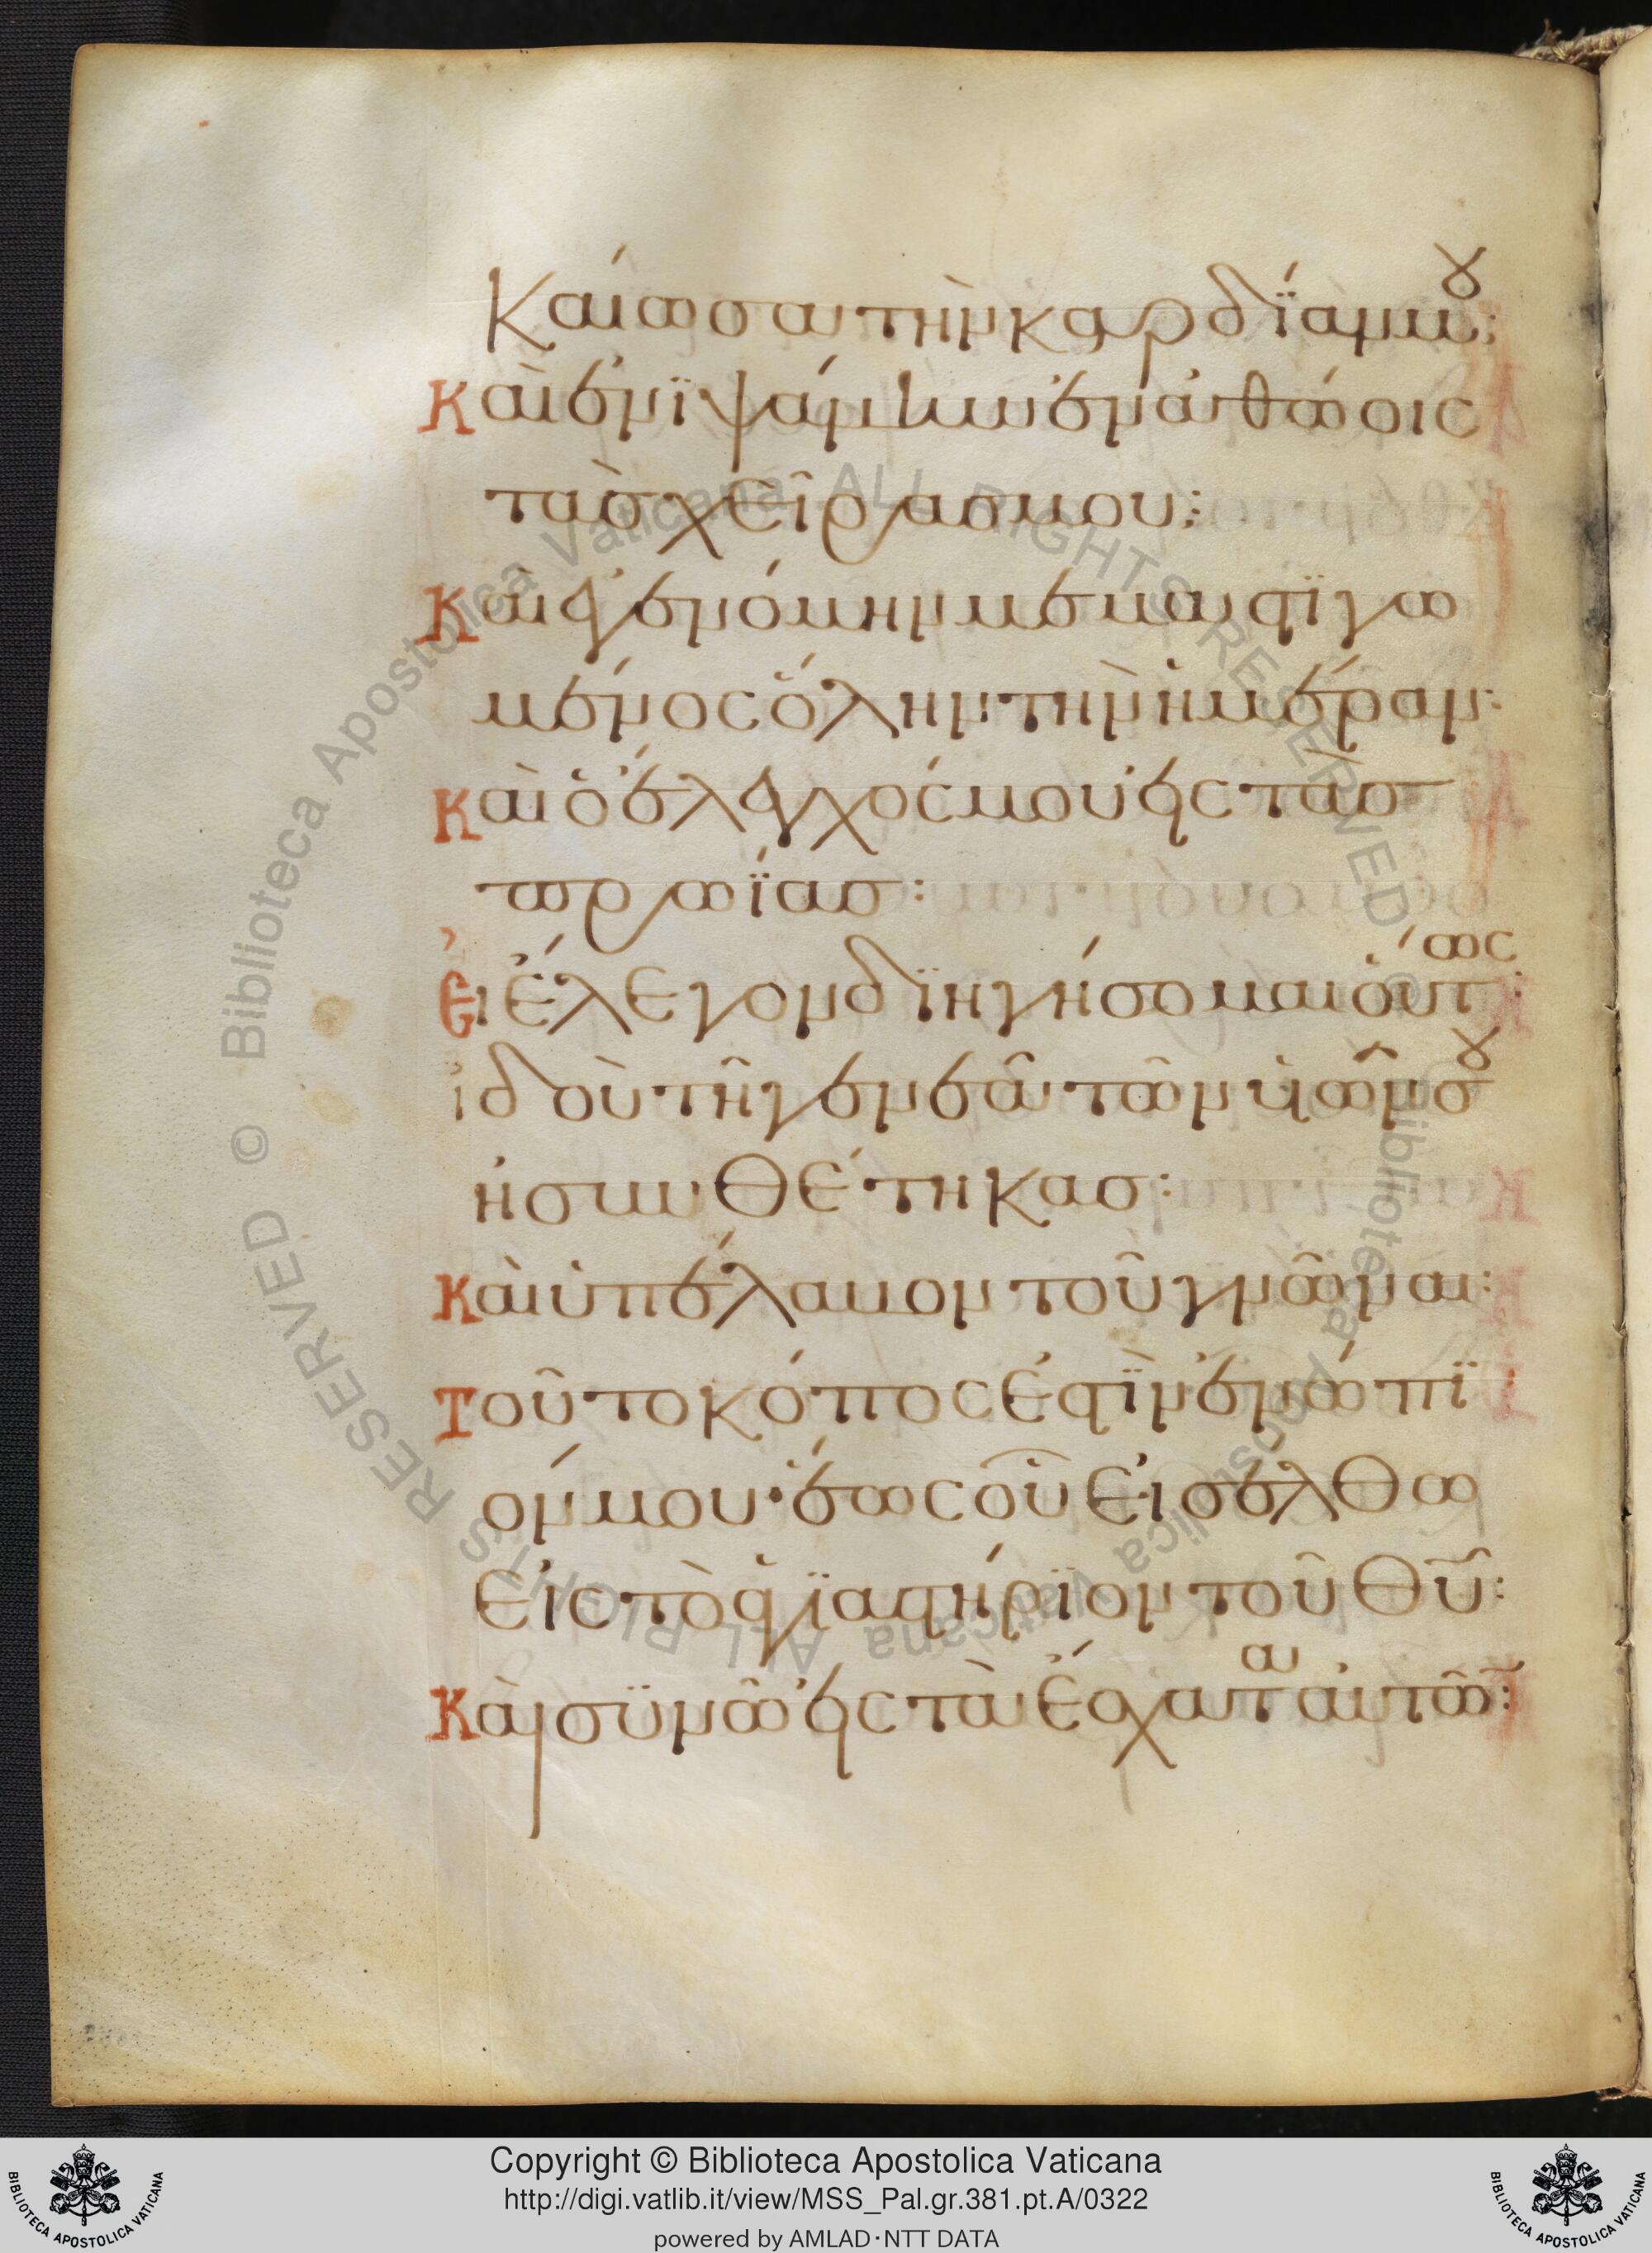 Καίωσα τὴν καρδίαν μου:
Καὶ ἐνιψάμην ἐν ἀθώοις
τὰς χεῖρας μου:
Καὶ ἐγενόμην μεμαστιγω
μένος ὅλην τὴν ἡμέραν:
Καὶ ὁ ἔλεγχός μου εἰς τὰς
πρωΐας:
Εἰ ἔλεγον διηγήσομαι οὕτως:
ἰδοὺ τῇ γενεᾷ τῶν υἱῶν σου
ἠσυνθέτηκας:
Καὶ ὑπέλαμον τοῦ γνῶναι:
Τοῦτο κόπος ἐστὶν ἐνώπι
όν μου· ἕως οὗ εἰσέλθω
εἰς τὸ ἁγιαστήριον τοῦ Θῦ:
Καὶ συνῶ εἰς τὰ ἔσχατα αὐτῶ:
© Biblioteca Apostolica Vaticana ALL RIGHTS RESERVED © Biblioteca Apostolica Vaticana ALL RIGHTS RESERVED
Copyright © Biblioteca Apostolica Vaticana
http://digi.vatlib.it/view/MSS_Pal.gr.381.pt.A/0322
powered by AMLAD·NTT DATA
BIBLIOTECA APOSTOLICA VATICANA
BIBLIOTECA APOSTOLICA VATICANA